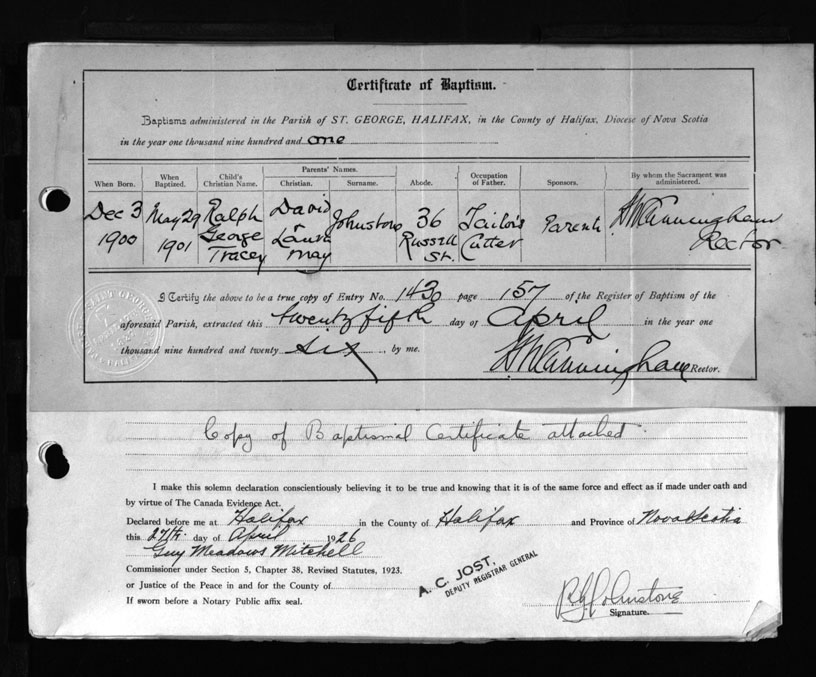 Certificate of Baptism.
Baptisms administered in the Parish of ST. GEORGE, HALIFAX, in the County of Halifax, Diocese of Nova Scotia
in the year one thousand nine hundred and one
When Born. When Baptized. Child's Christian Name. Parents' Names. Christian. Surname. Abode. Occupation of Father. Sponsors. By whom the Sacrament was administered.
Dec 3 1900 May 29 1901 Ralph George Tracey David & Laura May Johnstone 36 Russell St. Tailor's Cutter Parents H W Cunningham Rector
I Certify the above to be a true copy of Entry No. 1430 page 157 of the Register of Baptism of the
aforesaid Parish, extracted this twenty fifth day of April in the year one
thousand nine hundred and twenty six, by me.
H W Cunningham Rector.
Copy of Baptismal Certificate attached.
I make this solemn declaration conscientiously believing it to be true and knowing that it is of the same force and effect as if made under oath and
by virtue of The Canada Evidence Act.
Declared before me at Halifax in the County of Halifax and Province of Nova Scotia
this 27th day of April 1926
Guy Meadows Mitchell
Commissioner under Section 5, Chapter 38, Revised Statutes, 1923.
or Justice of the Peace in and for the County of
If sworn before a Notary Public affix seal.
A. C. JOST,
DEPUTY REGISTRAR GENERAL
Johnstone
Signature.